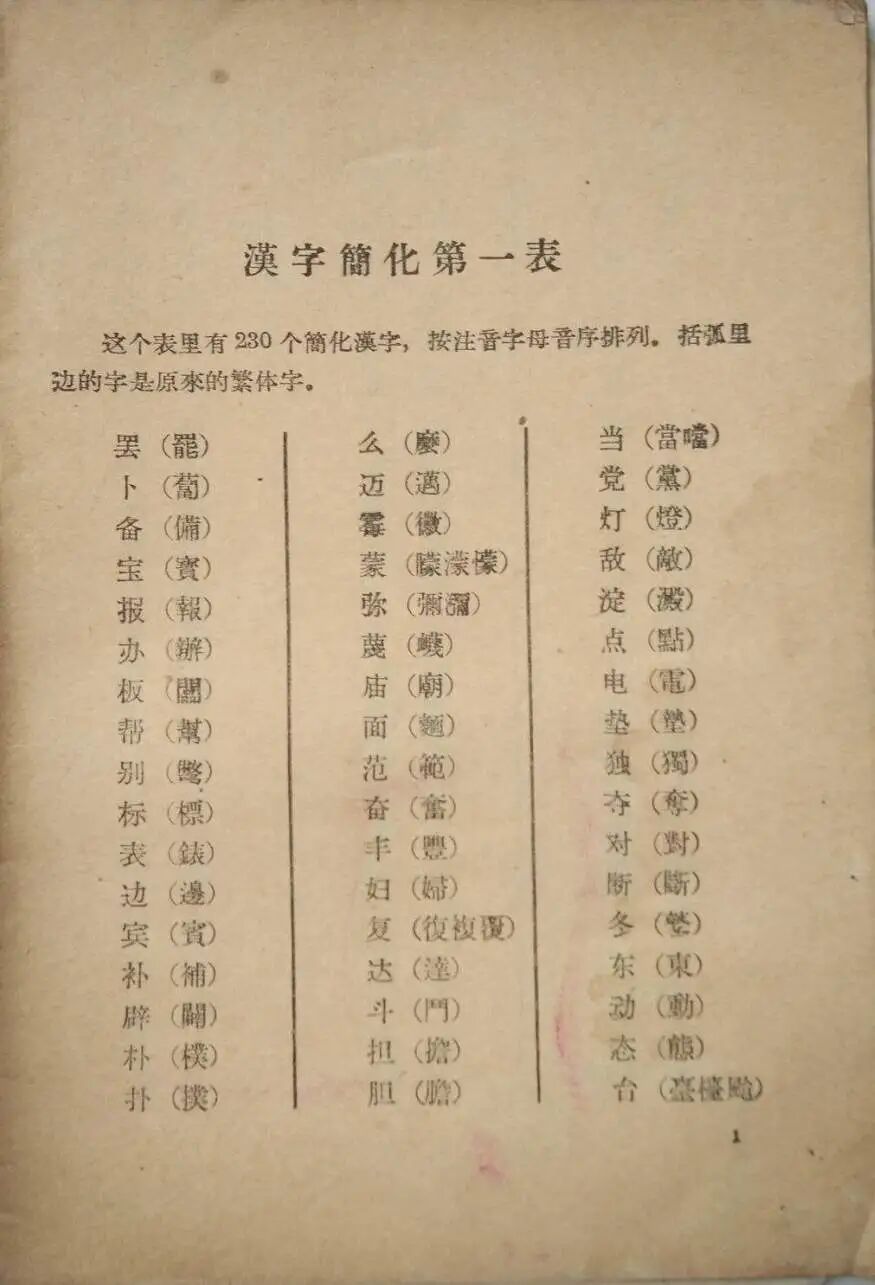 漢字簡化第一表
这个表里有230个簡化漢字，按注音字母音序排列。括弧里
边的字是原來的繁体字。
罢（罷）
卜（蔔）
备（備）
宝（寳）
报（報）
办（辦）
板（闆）
帮（幫）
别（彆）
标（標）
表（錶）
边（邊）
宾（賓）
补（補）
辟（闢）
朴（樸）
扑（撲）
么（麼）
迈（邁）
霉（黴）
蒙（矇濛懞）
弥（彌瀰）
蔑（衊）
庙（廟）
面（麵）
范（範）
奋（奮）
丰（豐）
妇（婦）
复（復複覆）
达（達）
斗（鬥）
担（擔）
胆（膽）
当（當噹）
党（黨）
灯（燈）
敌（敵）
淀（澱）
点（點）
电（電）
垫（墊）
独（獨）
夺（奪）
对（對）
断（斷）
冬（鼕）
东（東）
动（動）
态（態）
台（臺檯颱）
1